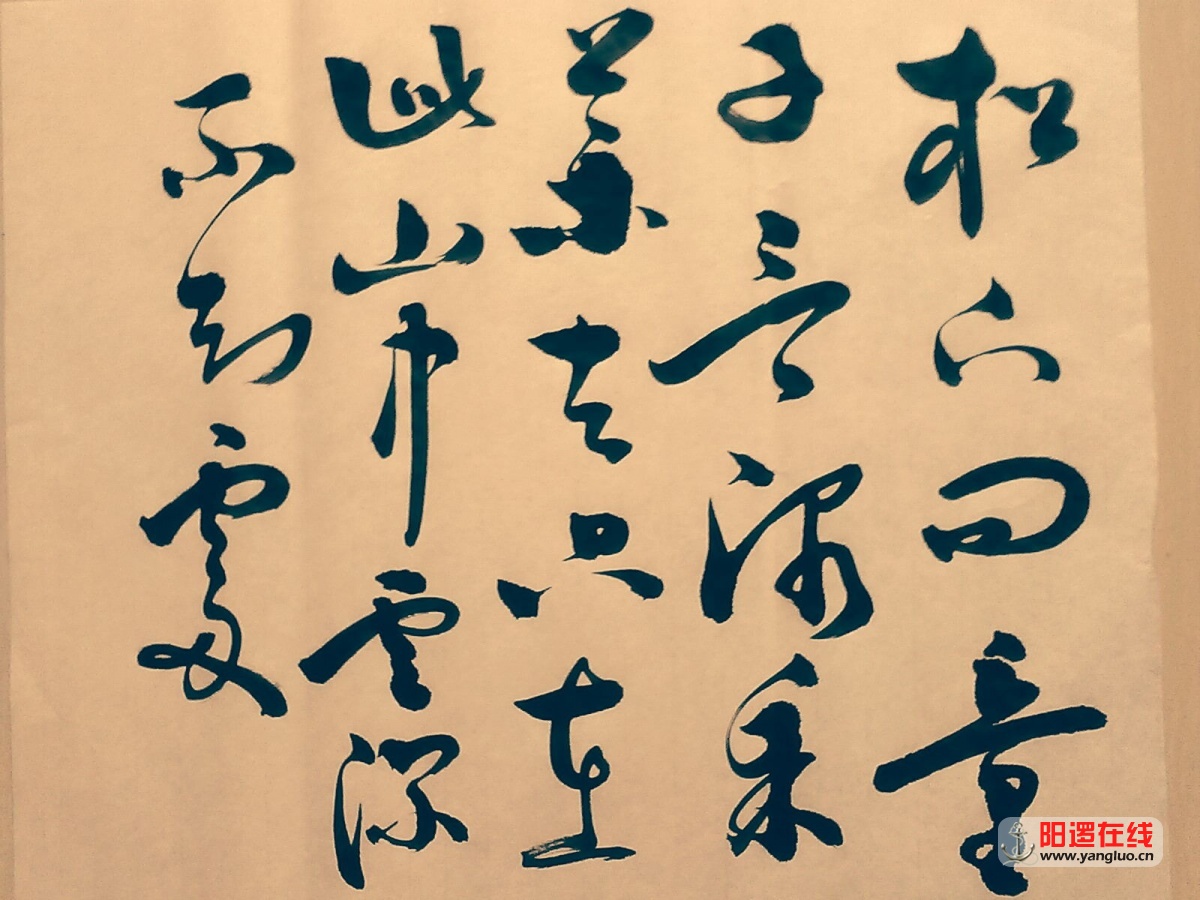 松下问童
子言师采
药去只在
此山中云深
不知处
阳逻在线
www.yangluo.cn